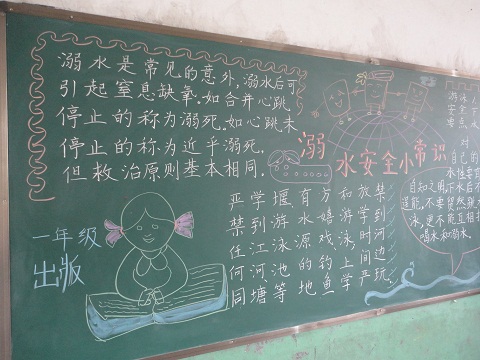 溺水是常见的意外,溺水后可
引起窒息缺氧.如合并心跳
停止的称为溺死.如心跳未
停止的称为近乎溺死.
但救治原则基本相同.
溺水安全小常识
严禁任何同
学到江河塘
堰游泳池等
有水源的地
方嬉戏钓鱼
和游泳,上学
放学时间严
禁到河边玩.
一年级
出版
游泳
对
自己的
水性要
自知之明,下水后不
逞能,不要贸然跳
泳,更不能互相
喝水和溺水.